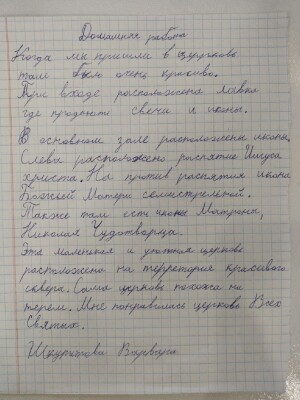 Домашняя работа
Когда мы пришла в церковь
там было очень красиво.
При входе расположена лавка
где продают свечи и иконы.
В основном зале расположены иконы.
Слева расположено распятие Иисуса
христа. На против распятия икона
Божьей Матери семистрельной.
Также там есть икона Матроны,
Николая Чудотворца.
Эта маленькая и уютная церковь
расположена на территория красивого
сквера. Сама церковь похожа на
терем. Мне понравилась церковь Всех
Святых.
Варвара